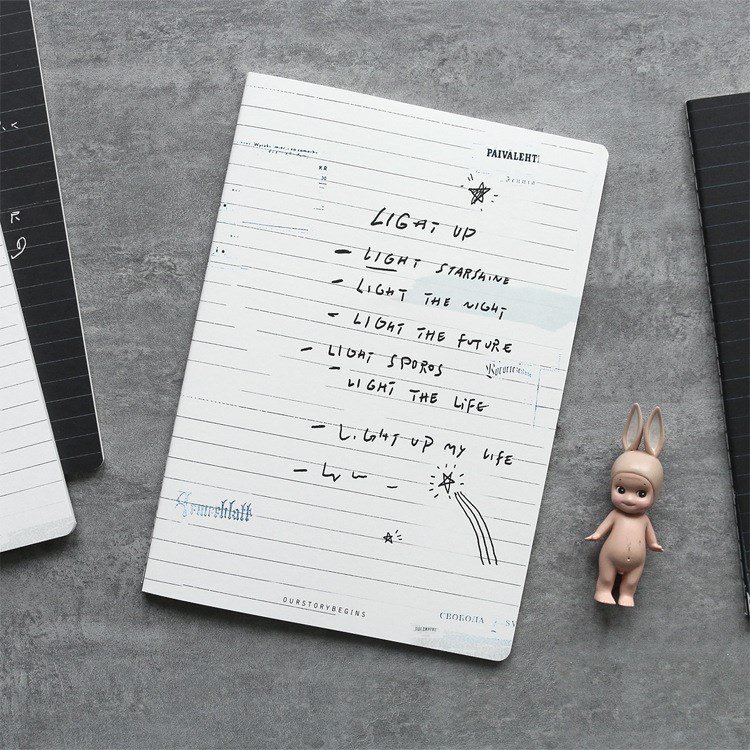 PAIVALEHTI
KR
LIGHT UP
– LIGHT STARSHINE
– LIGHT THE NIGHT
– LIGHT THE FUTURE
– LIGHT SPOROS
– LIGHT THE LIFE
– LIGHT UP MY LIFE
OURSTORYBEGINS
СВОБОДА
R